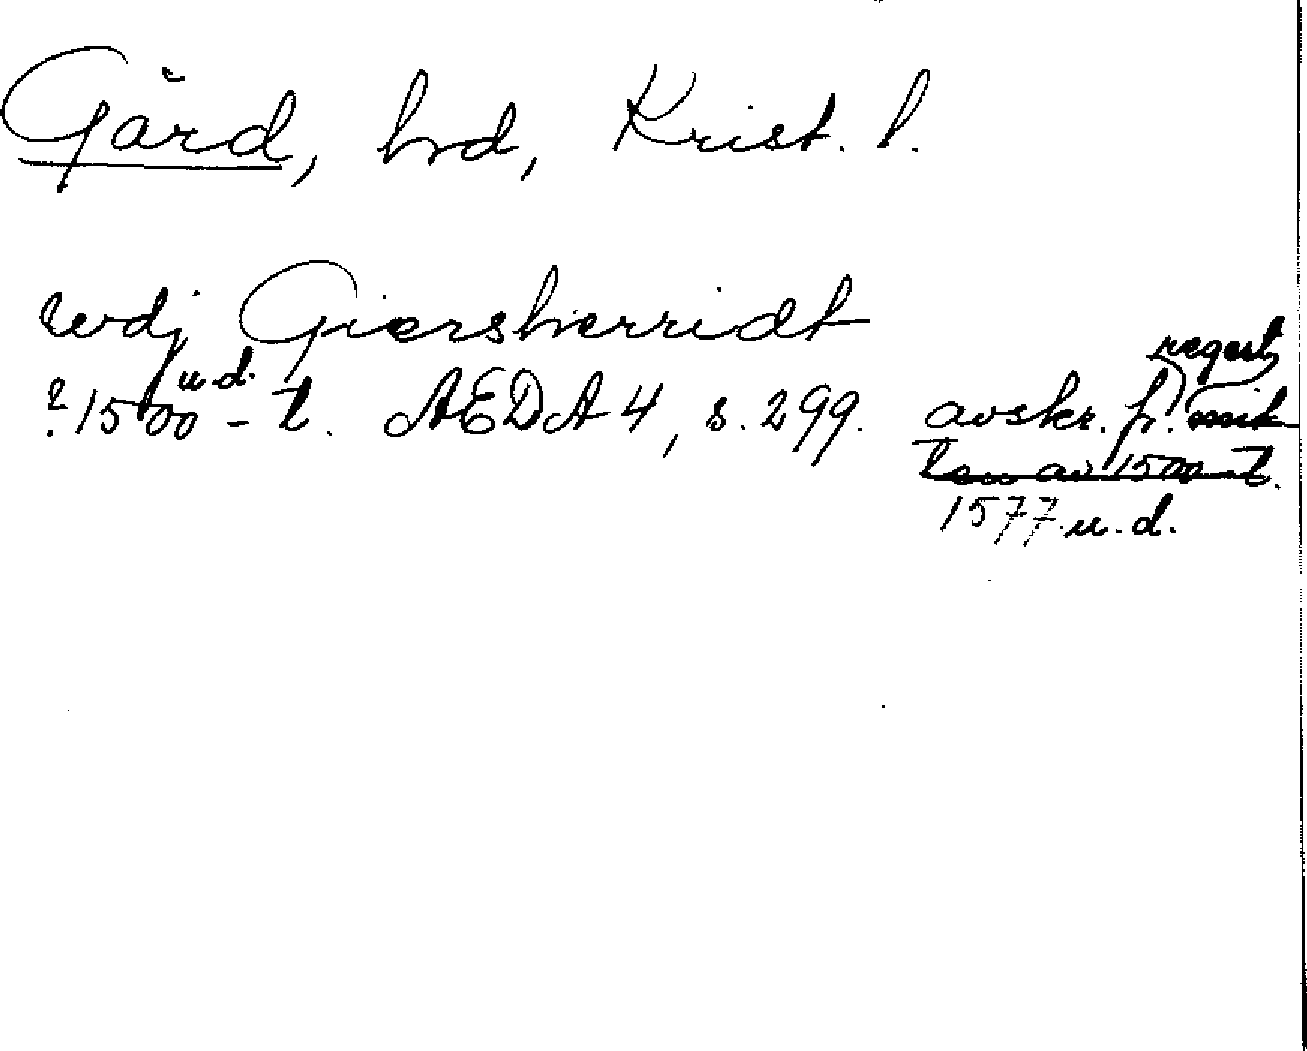 Gärd, hrd, Krist. l.
vdj Giersherridt
u. d.
? 1500 - t. AEDA 4, s. 299. avskr. fr. mit
regest
ten av 1500-t.
1577 u. d.